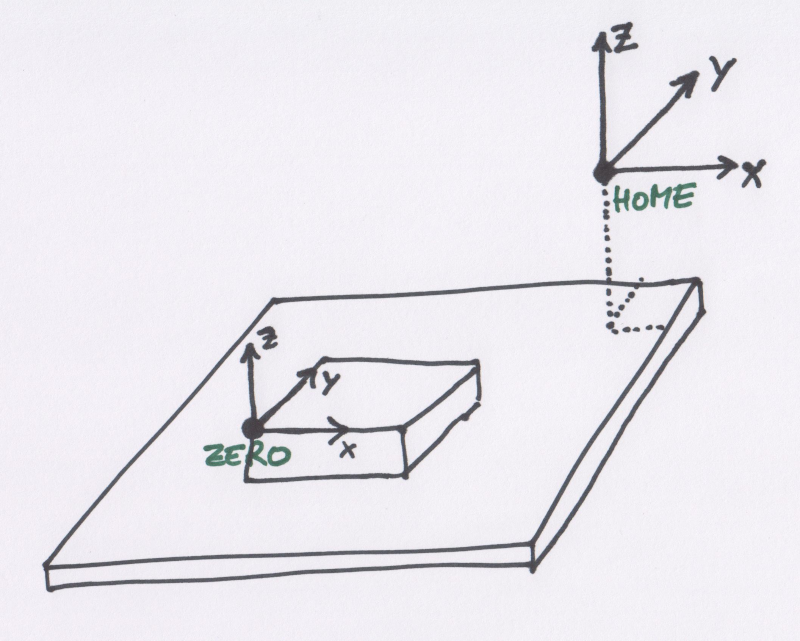 Z
Y
X
HOME
Z
Y
X
ZERO